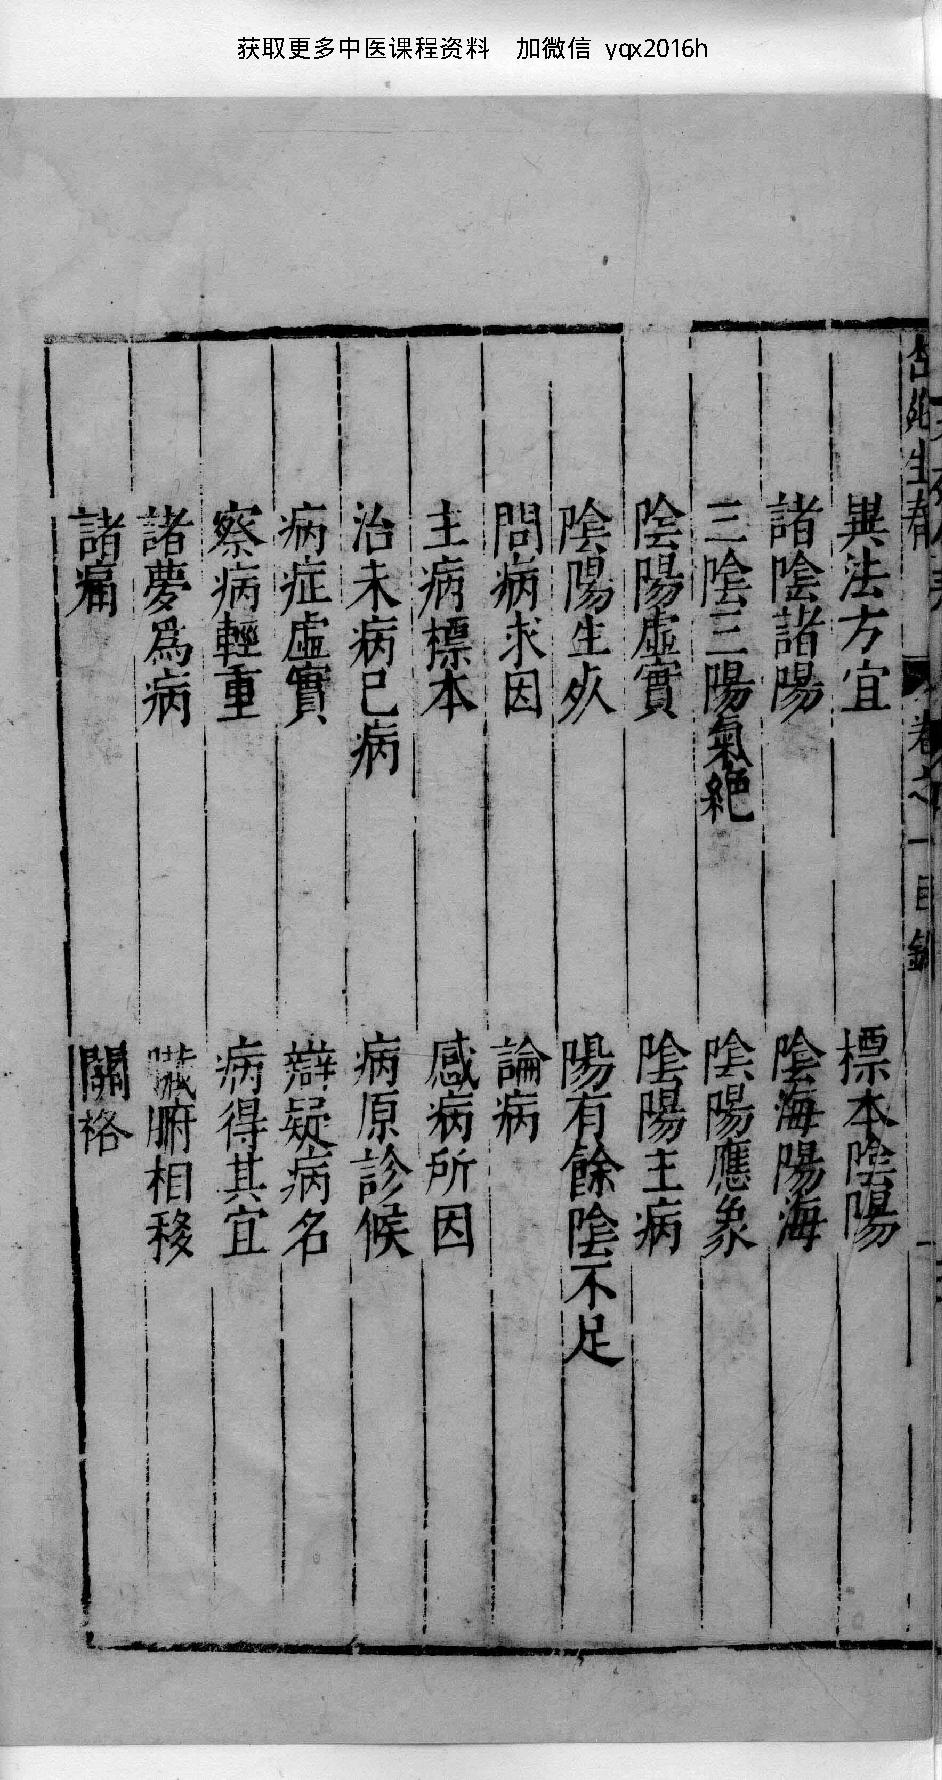 获取更多中医课程资料 加微信 yqx2016h
卷之一目錄
異法方宜 標本陰陽
諸陰諸陽 陰海陽海
三陰三陽氣絶 陰陽應象
陰陽虛實 陰陽主病
陰陽生死 陽有餘陰不足
問病求因 論病
主病標本 感病所因
治未病已病 病原診候
病症虛實 辯疑病名
察病輕重 病得其宜
諸夢爲病 臟腑相移
諸痛 關格